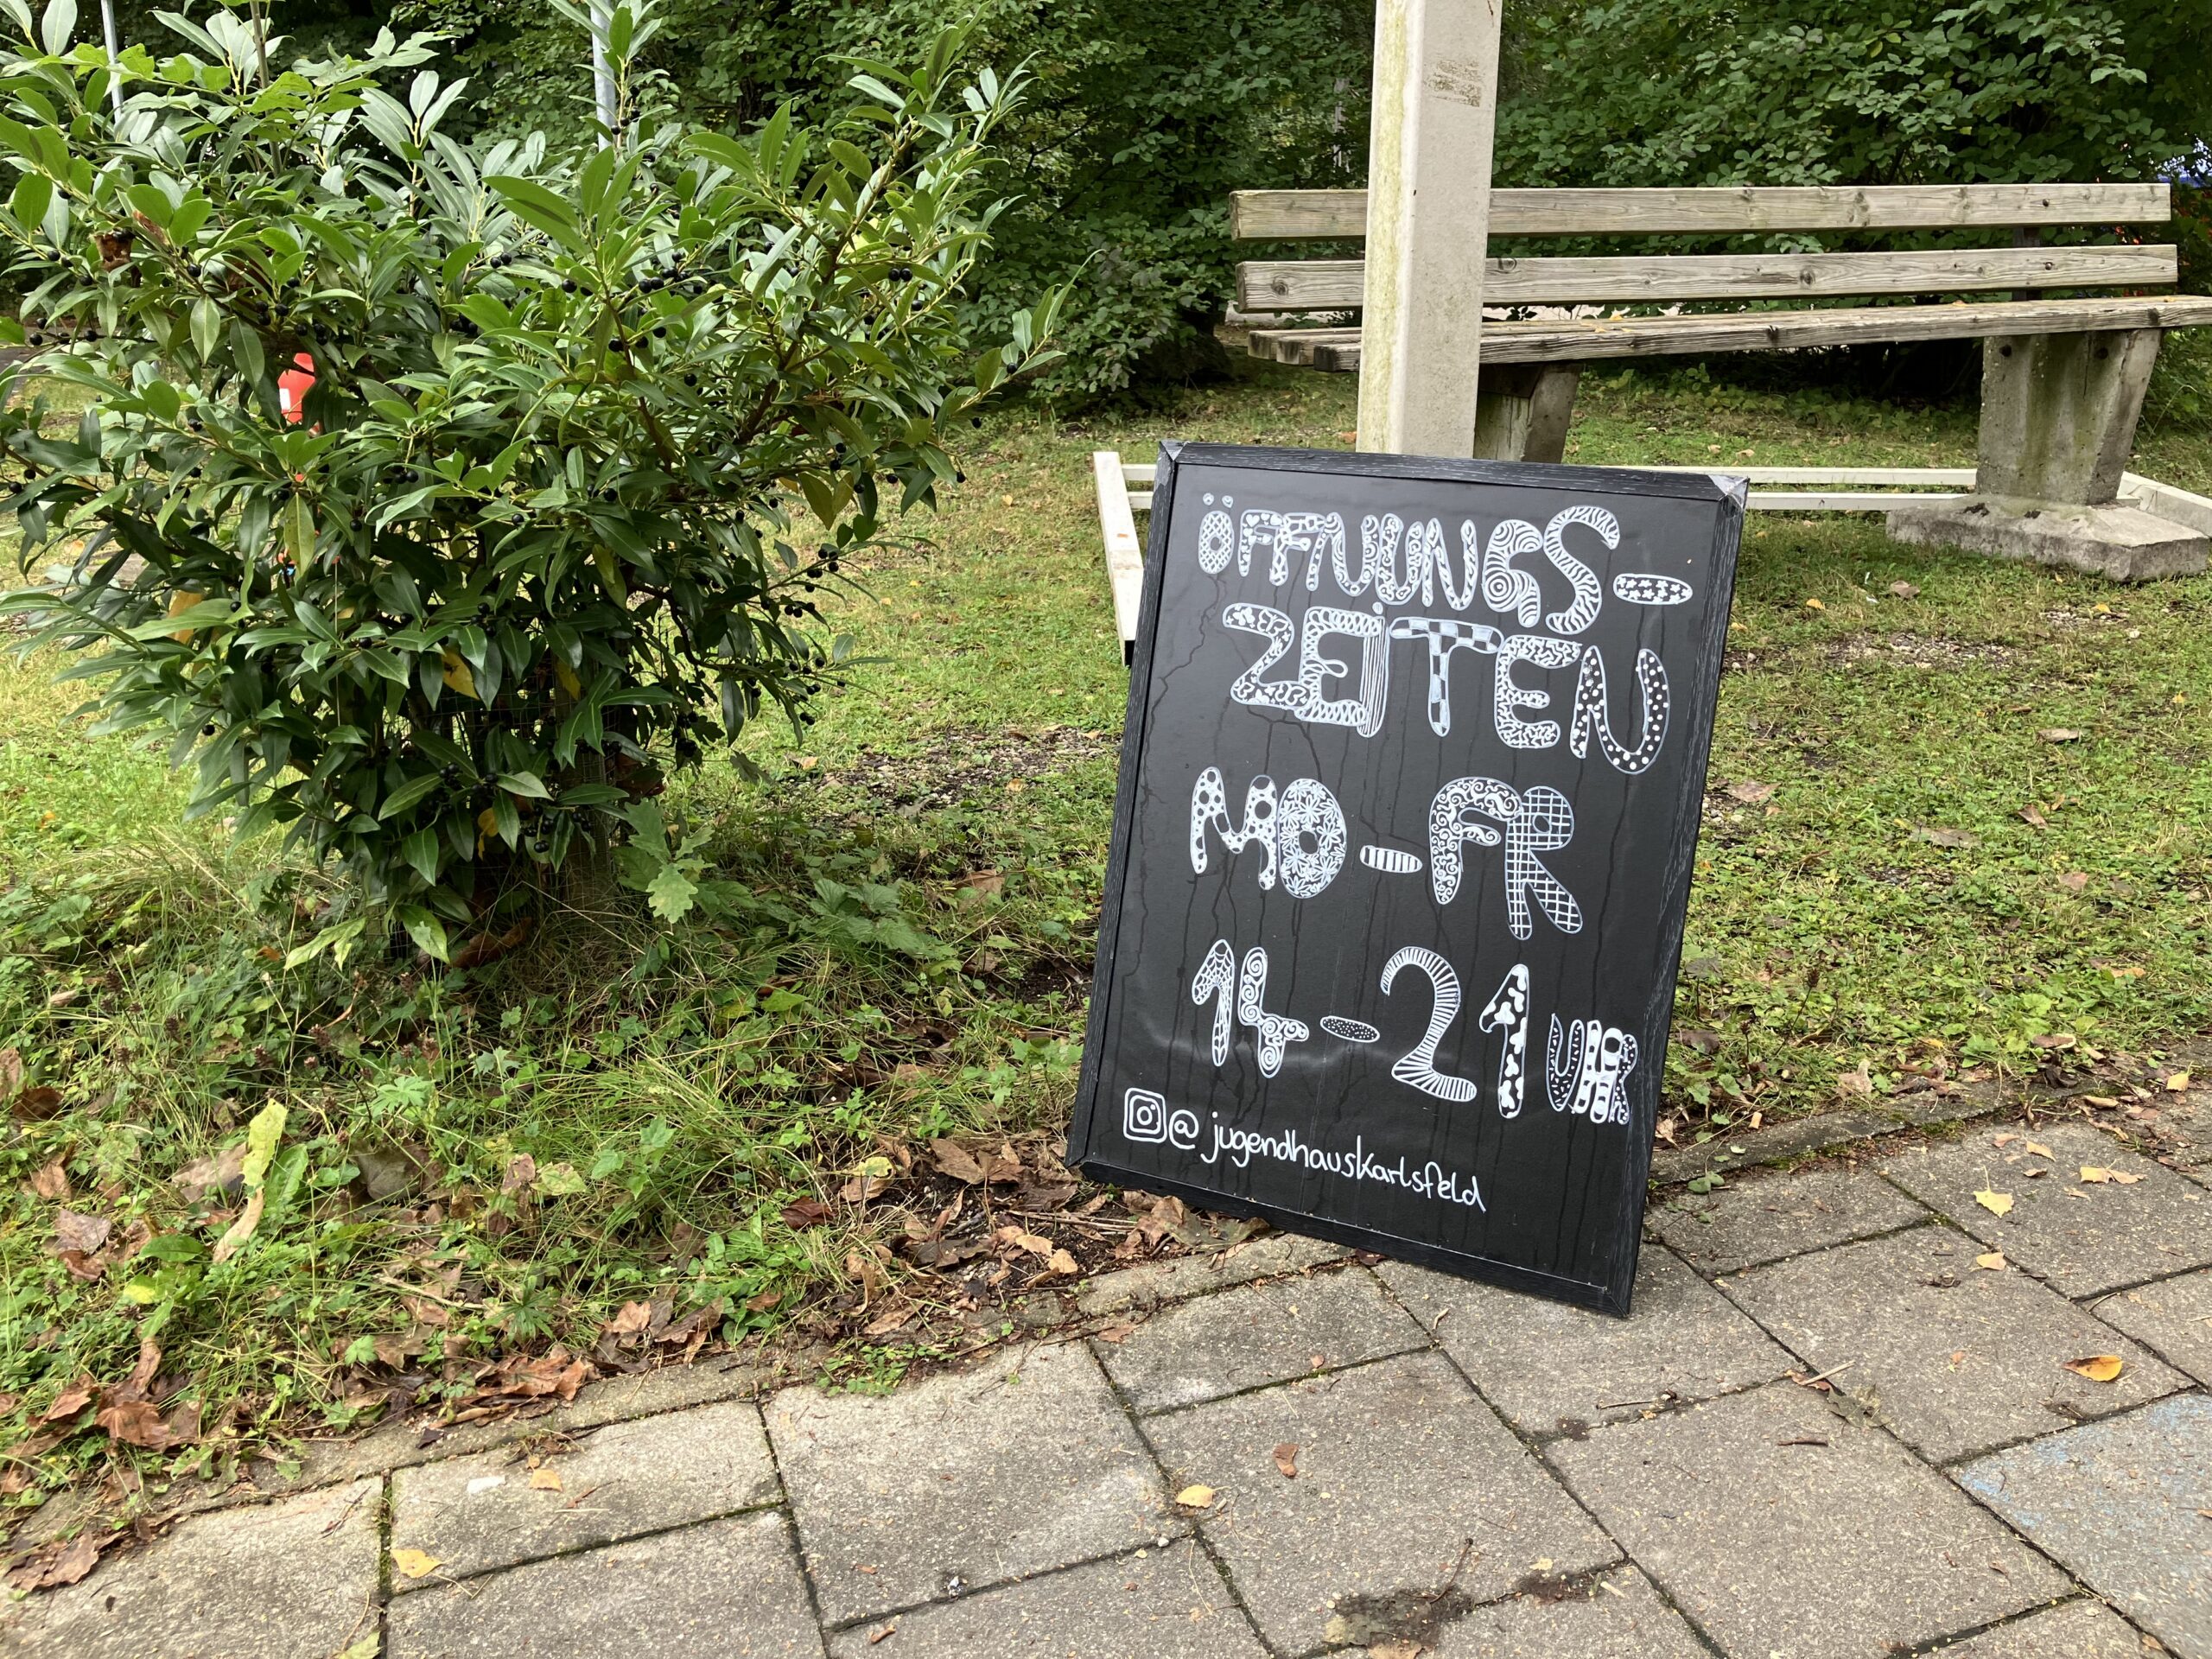 ÖFFNUNGS-
ZEiTEN
MO-FR
14-21 UHR
@jugendhauskarlsfeld